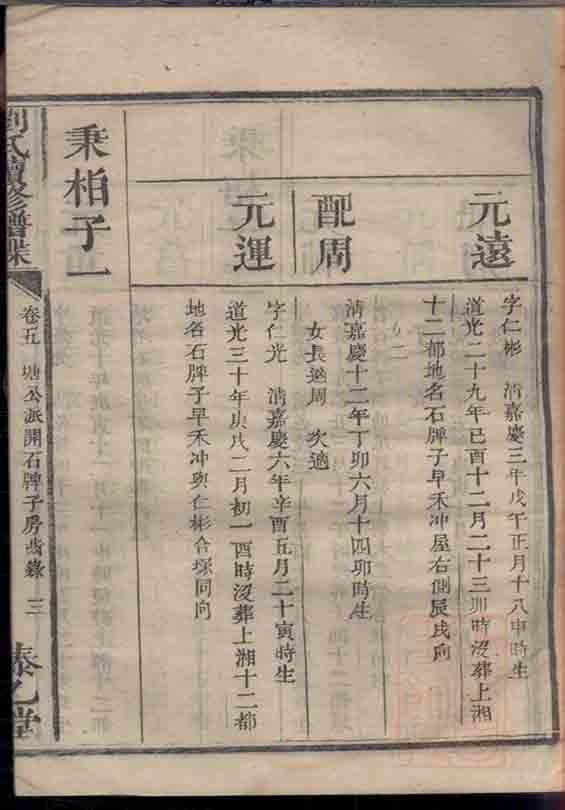 元遠
字仁彬 清嘉慶三年戊午正月十八申時生
道光二十九年己酉十二月二十三卯時沒葬上湘
十二都地名石牌子早禾冲屋右側辰戌向
配周
清嘉慶十二年丁卯六月十四卯時生
女長適周 次適
元運
字仁光 清嘉慶六年辛酉五月二十寅時生
道光三十年庚戌二月初一酉時沒葬上湘十二都
地名石牌子早禾冲與仁彬合塚同向
秉柏子一
劉氏續修譜牒
卷五 塘公派開石牌子房齒錄 三
泰乙堂